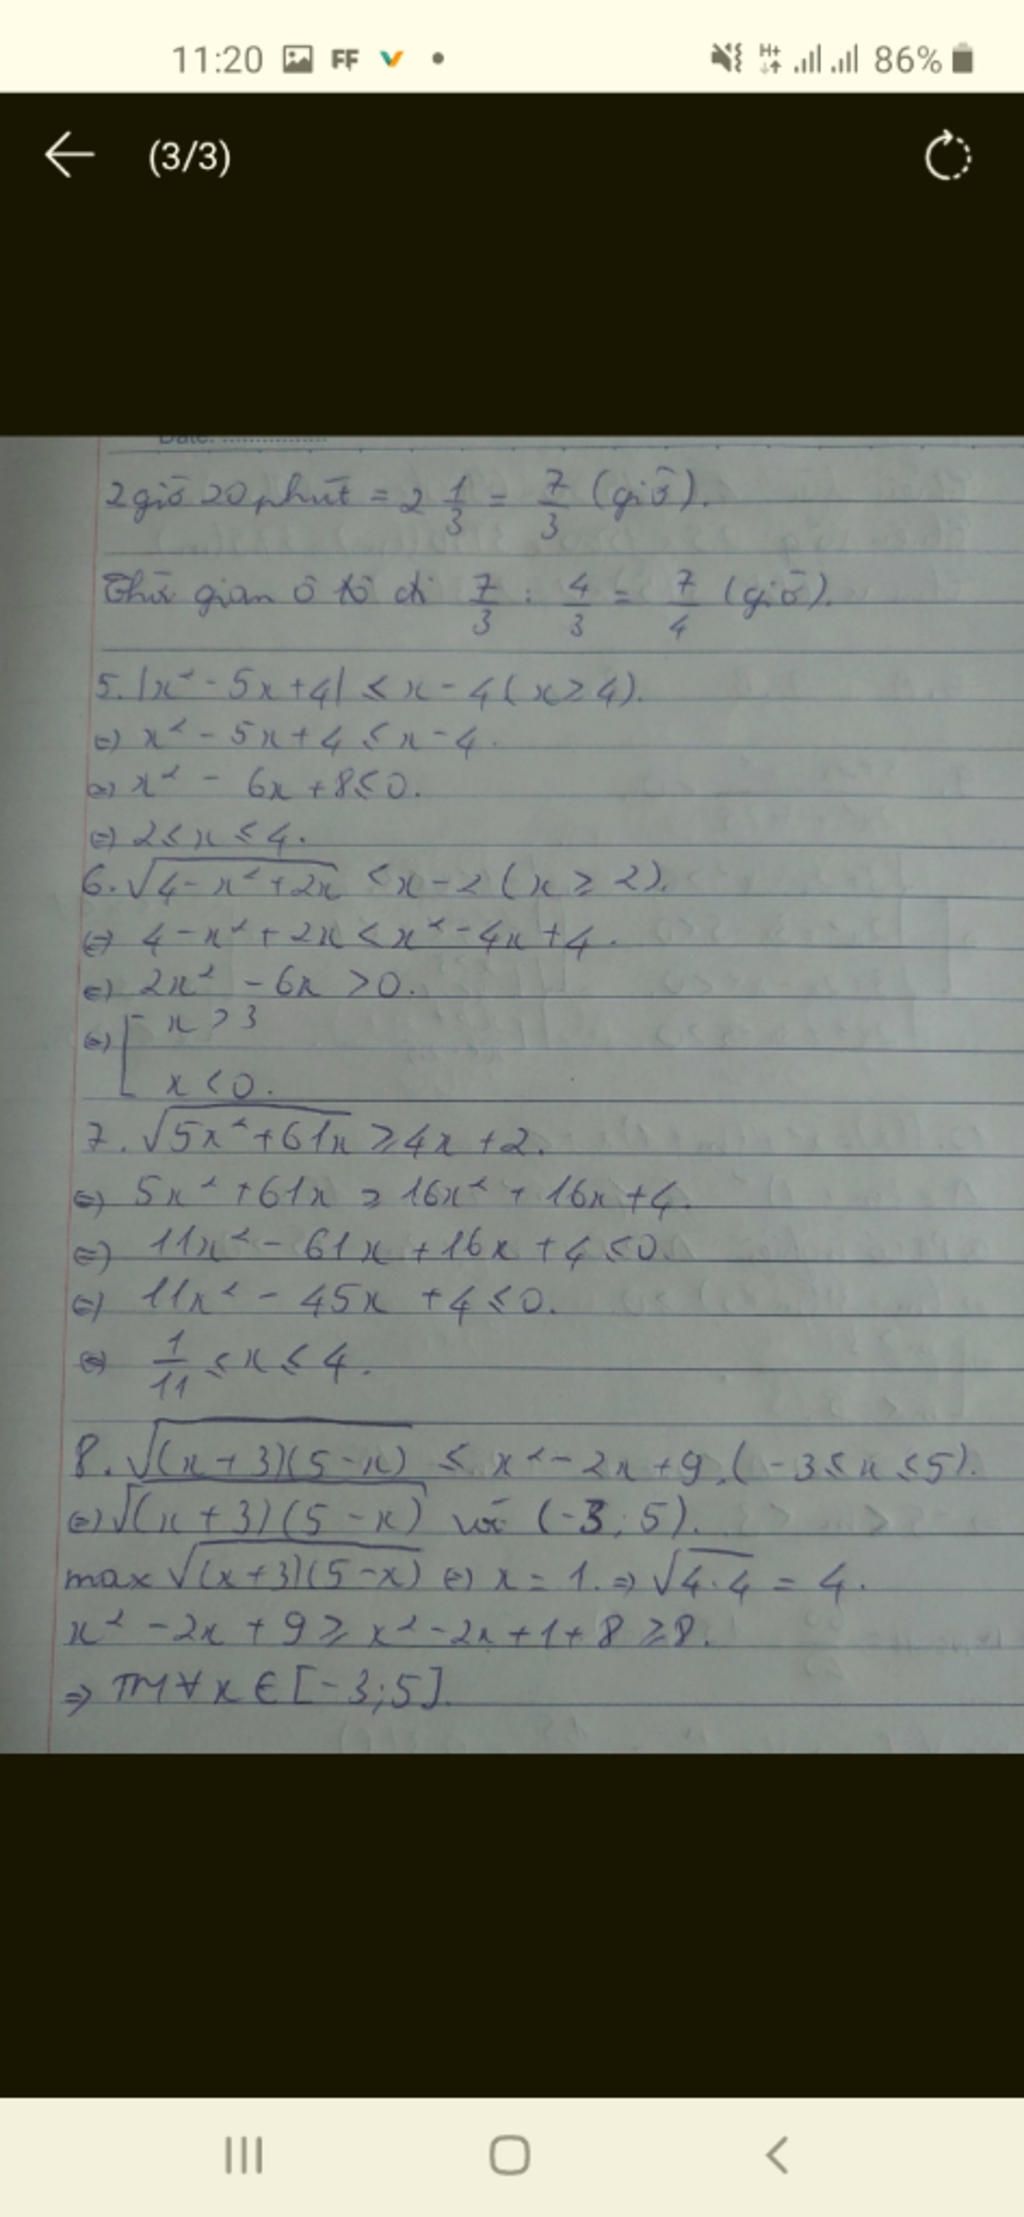 11:20 FF 86%
(3/3)
Date: ................
2 giờ 20 phút = 2 1/3 = 7/3 (giờ).
Thời gian ô tô đi 7/3 : 4/3 = 7/4 (giờ).
5. |x² - 5x + 4| ≤ x - 4 (x ≥ 4).
⇔ x² - 5x + 4 ≤ x - 4.
⇔ x² - 6x + 8 ≤ 0.
⇔ 2 ≤ x ≤ 4.
6. √(4 - x² + 2x) < x - 2 (x ≥ 2).
⇔ 4 - x² + 2x < x² - 4x + 4.
⇔ 2x² - 6x > 0.
⇔ [ x > 3
x < 0.
7. √(5x² + 61x) ≥ 4x + 2.
⇔ 5x² + 61x ≥ 16x² + 16x + 4.
⇔ 11x² - 61x + 16x + 4 ≤ 0.
⇔ 11x² - 45x + 4 ≤ 0.
⇔ 1/11 ≤ x ≤ 4.
8. √((x + 3)(5 - x)) ≤ x² - 2x + 9. (-3 ≤ x ≤ 5).
⇔ √((x + 3)(5 - x)) với (-3; 5).
max √((x+3)(5-x)) ⇔ x = 1. ⇒ √(4.4) = 4.
x² - 2x + 9 ≥ x² - 2x + 1 + 8 ≥ 8.
⇒ TM ∀ x ∈ [-3; 5].